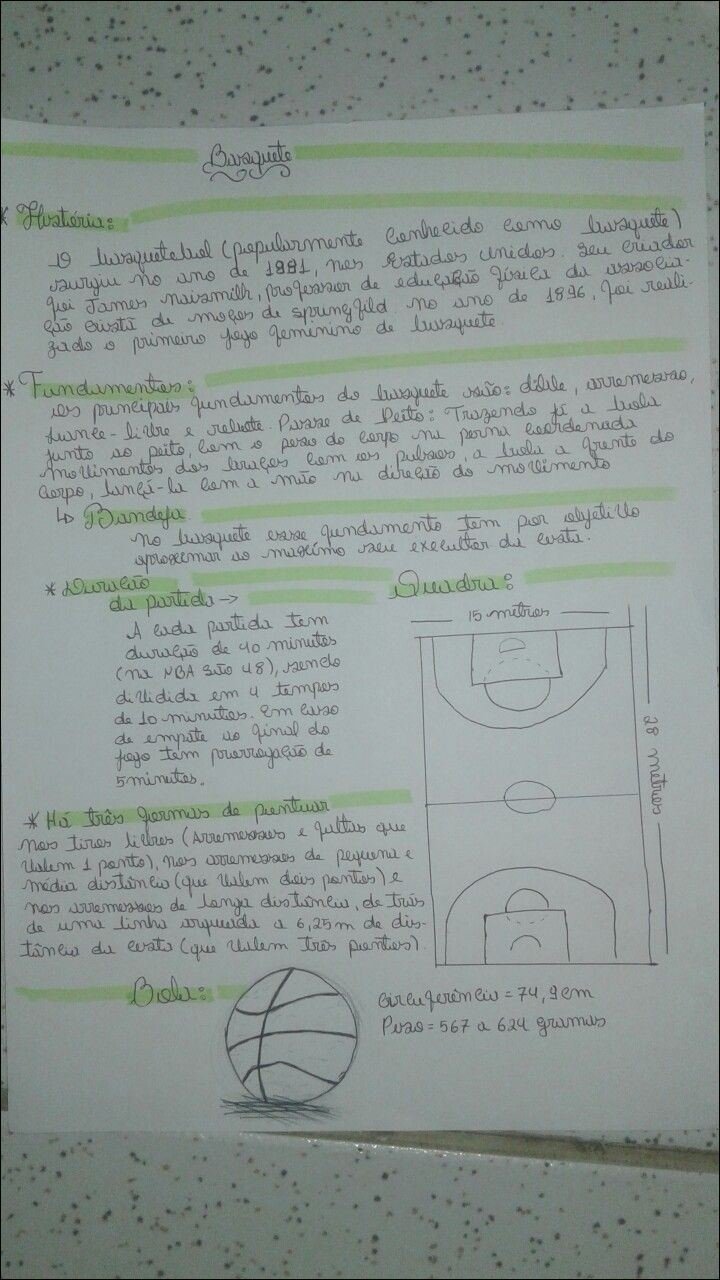 Basquete
* História:
O basquetebol (popularmente conhecido como basquete)
surgiu no ano de 1891, nos Estados Unidos. Seu criador
foi James naismilh, professor de educação física da associa-
ção cristã de moços de springfild. no ano de 1896, foi reali-
zado o primeiro jogo feminino de basquete.
* Fundamentos:
os principais fundamentos do basquete são: dible, arremessso,
Lance-livre e rebote. Passe de Peito: Trazendo já a bola
junto ao peito, com o peso do corpo na perna coordenada
movimentos dos braços com os pulsos, a bola a frente do
corpo, lançá-la com a mão na direção do movimento
↳ Bandeja
no basquete esse fundamento tem por objetivo
aproximar ao maximo seu executor da cesta.
* Duração
da partida →
A cada partida tem
duração de 40 minutos
(na NBA são 48), sendo
dividida em 4 tempos
de 10 minutos. Em caso
de empate ao final do
jogo tem prorrogação de
5 minutos.
Quadra:
15 metros
28 metros
* Há três formas de pontuar
nos tiros livres (Arremessos e faltas que
Valem 1 ponto), nos arremessos de pequena e
média distância (que Valem dois pontos) e
nos arremessos de longa distância, de trás
de uma linha arqueada a 6,25m de dis-
tância da cesta (que Valem três pontos).
Bola:
circunferência = 74,9cm
Peso = 567 a 624 gramas